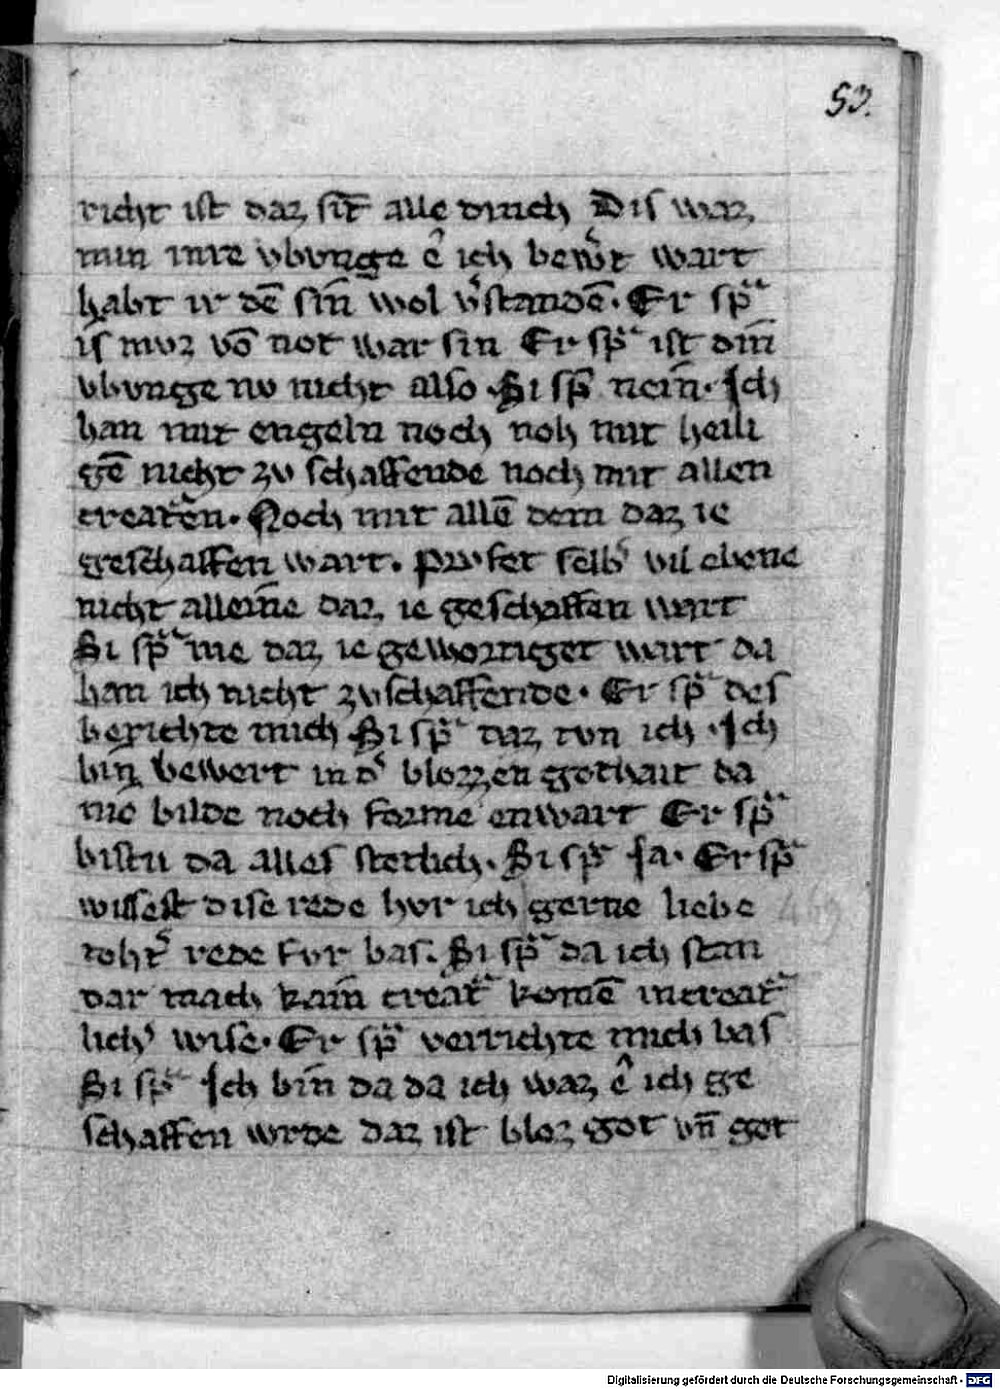 53.
richt ist daz sīt alle dinch Dis waz
min inre vbunge ê ich bew't wart
habt ir dē sin wol v'standē. Er sp̄ᵃ
is mvz vō not war sin Er sp̄ᵃ ist din
vbunge nv nicht also. Si sp̄ᵃ nein. Ich
han mit engeln noch noh mit heili
gē nicht zv schaffende noch mit allen
creatᵘen. Noch mit allē dem daz ie
geschaffen wart. prvfet selb' vil ebene
nicht alleine daz ie geschaffen wart
Si sp̄ᵃ me daz ie gewortiget wart da
han ich nicht zvschaffende. Er sp̄ᵃ des
berichte mich Si sp̄ᵃ daz tvn ich. Ich
bin bewert in d' blozzen gothait da
nie bilde noch forme enwart Er sp̄ᵃ
bistu da alles stetlich. Si sp̄ᵃ Ja. Er sp̄ᵃ
wissest dise rede hor ich gerne liebe
toht' rede fvr bas. Si sp̄ᵃ da ich stan
dar mach kain creatᵘ komē in creatᵘ
lich' wise. Er sp̄ᵃ verrichte mich bas
Si sp̄ᵃ Ich bin da da ich waz ê ich ge
schaffen wrde daz ist bloz got vn̄ got
Digitalisierung gefördert durch die Deutsche Forschungsgemeinschaft - DFG